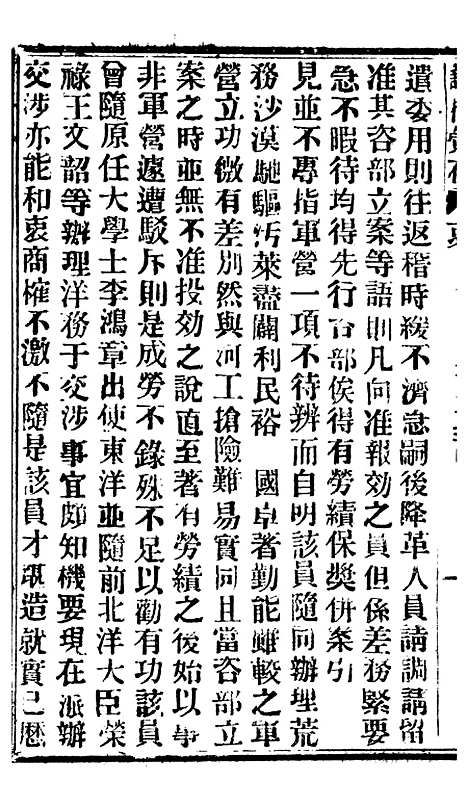 遣委用則往返稽時緩不濟急嗣後降革人員請調請留
准其咨部立案等語則凡向准報効之員但係差務緊要
急不暇待均得先行咨部俟得有勞績保奬併案引
見並不專指軍營一項不待辨而自明該員隨同辦理荒
務沙漠馳驅汚萊盡闢利民裕　國卓著勤能雖較之軍
營立功微有差別然與河工搶險難易實同且當咨部立
案之時並無不准投効之說直至著有勞績之後始以事
非軍營遽遭駁斥則是成勞不錄殊不足以勸有功該員
曾隨原任大學士李鴻章出使東洋並隨前北洋大臣榮
祿王文韶等辦理洋務于交涉事宜頗知機要現在派辦
交涉亦能和衷商榷不激不隨是該員才堪造就實已歷